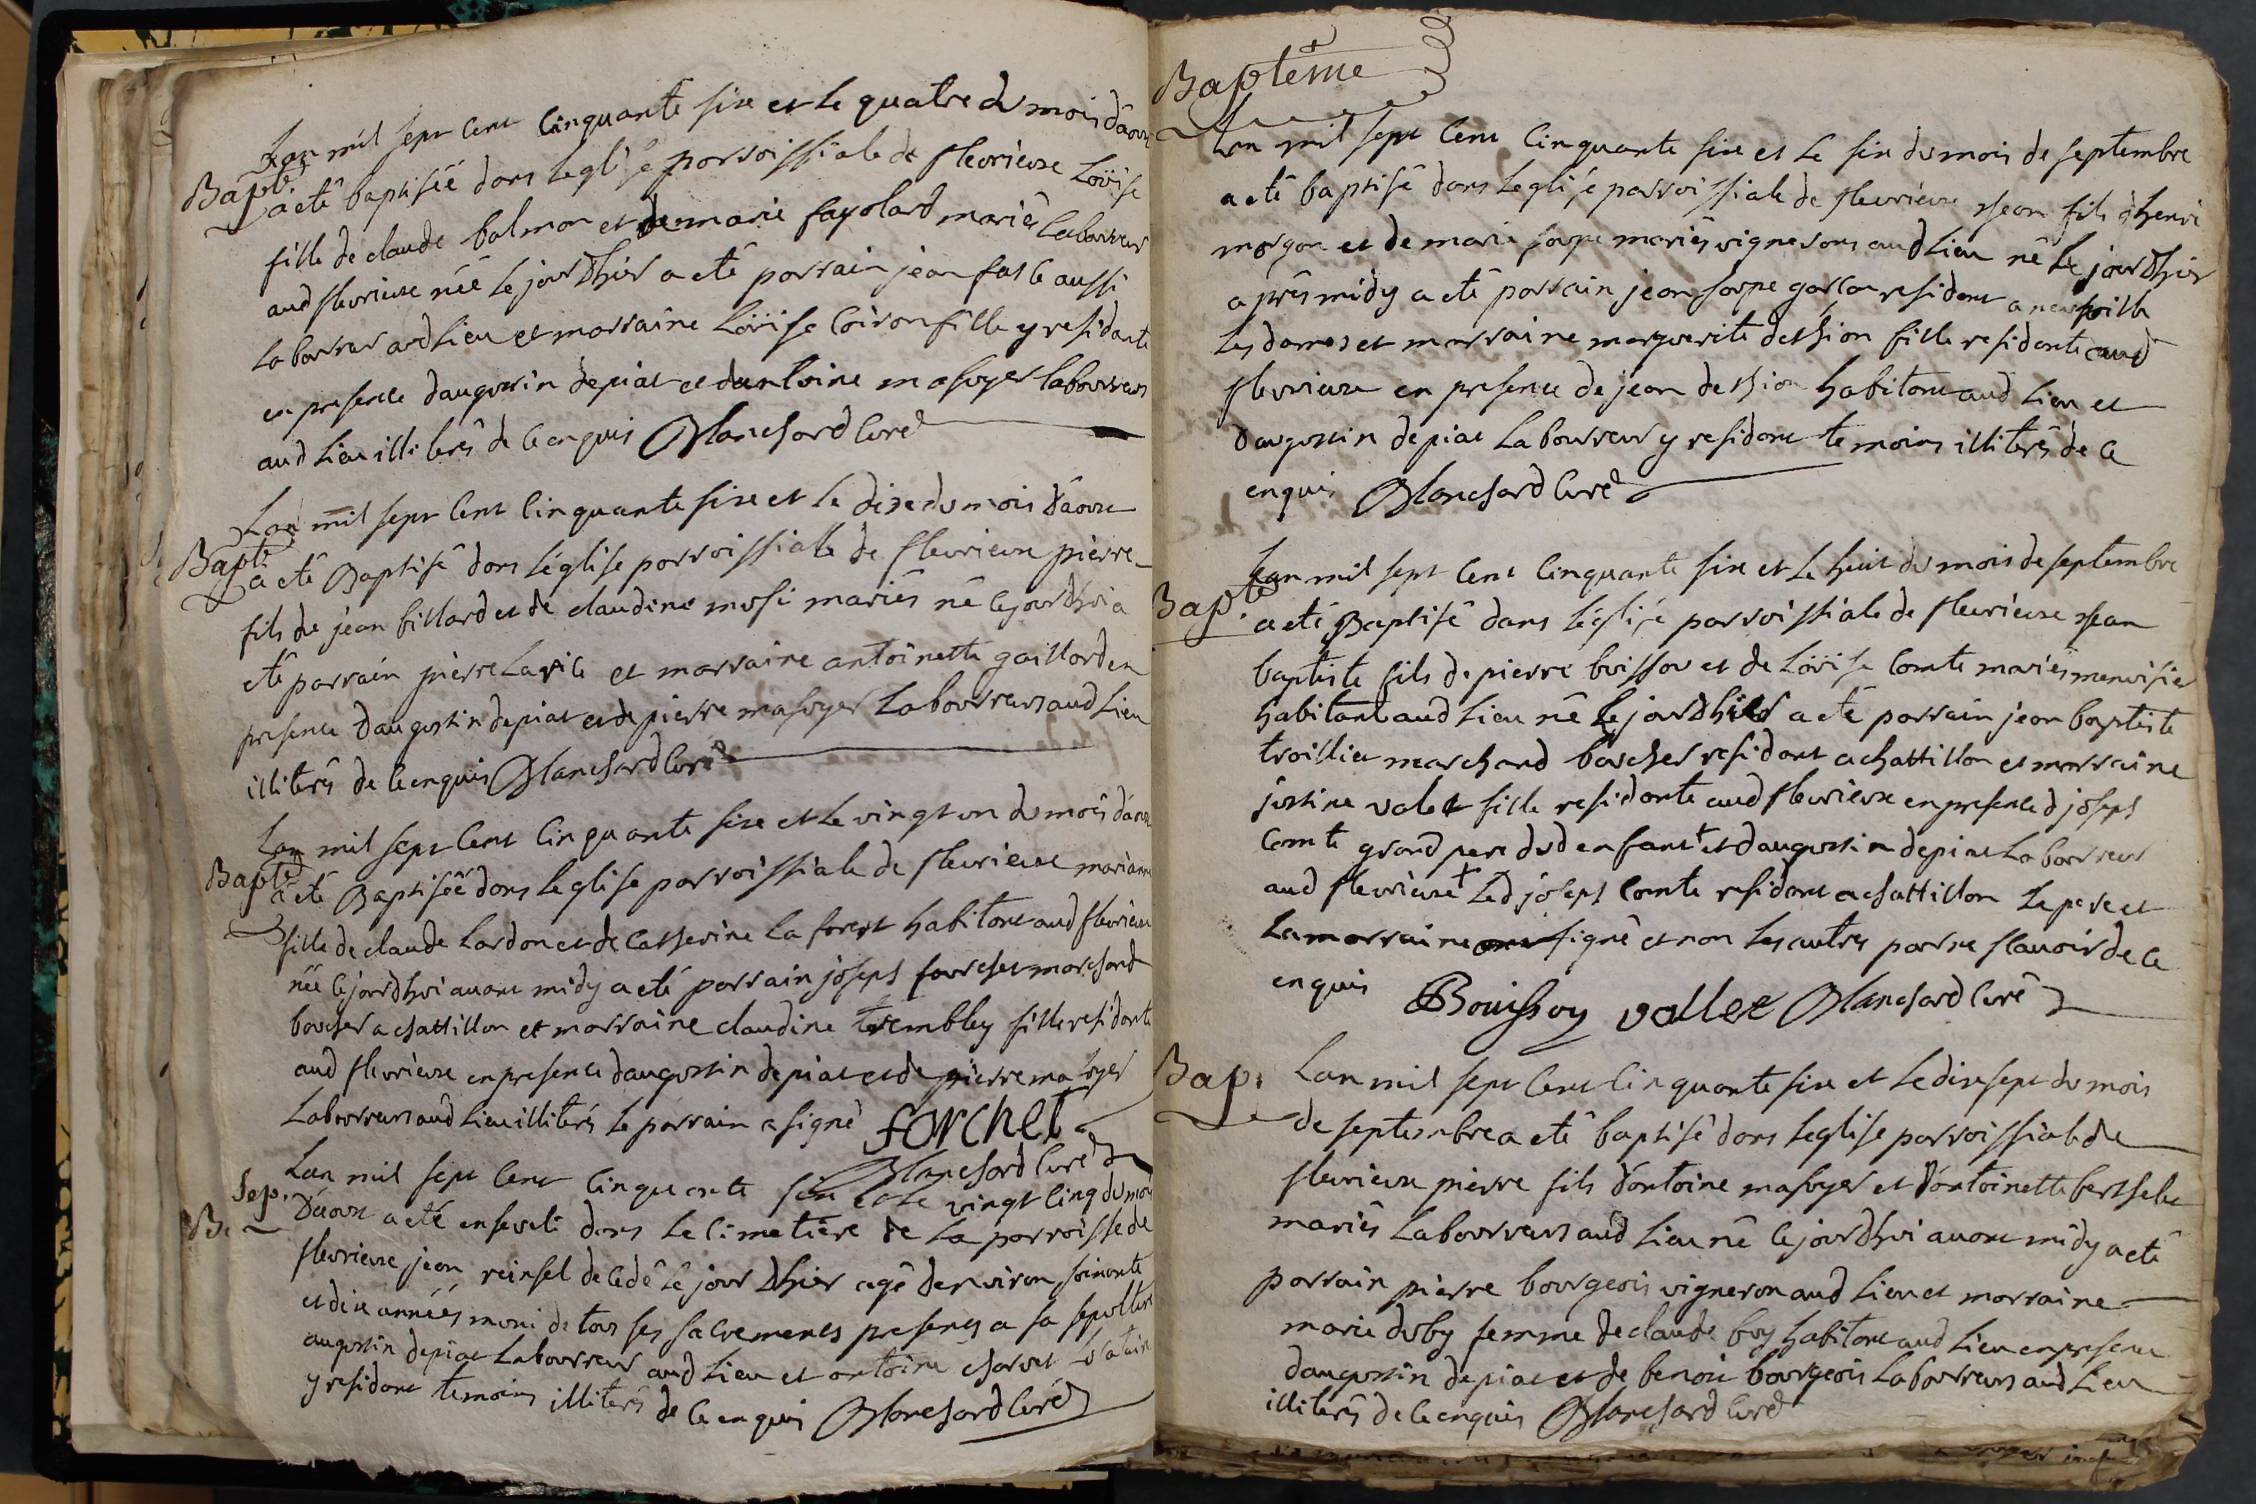 Lan mil sept cent cinquante six et le quatre du mois d'aoust
Bapte. a eté baptisée dans leglise parroissiale de fleurieux Loüise
fille de claude balmon et de marie fayolard mariés Laboureur
aud fleurieux née le jour d'hier a eté parrain jean
Laboureur aud Lieu et marraine Loüise Coiron fille y residante
en presence daugustin depiat et dantoine masoyer Laboureurs
aud Lieu illiterés de ce enquis Blanchard Curé
Lan mil sept cent cinquante six et le dix du mois d'aoust
Bapte a eté Baptisé dans léglise parroissialle de fleurieux pierre
fils de jean billard et de claudine mariés né cejourdhui a
eté parrain pierre et marraine antoinette gaillard en
presence daugustin depiat et de pierre masoyer Laboureurs aud Lieu
illiterés de ce enquis Blanchard Curé
Lan mil sept cent cinquante six et le vingt un du mois d'aoust
Bapte a eté Baptisée dans leglise parroissiale de fleurieux marianne
fille de claude Lardon et de Catherine La forest habitant aud fleurieux
née cejourdhui avant midy a eté parrain joseph fourchet marchand
boucher a chattillon et marraine claudine trembley fille residante
aud fleurieux en presence daugustin depiat et de pierre masoyer
Laboureurs aud Lieu illiterés le parrain a signé forchet
Blanchard Curé
Lan mil sept cent cinquante six et le vingt cinq du mois
Sep. d'aoust a eté enseveli dans le cimetière de la parroisse de
fleurieux jean decedé le jour d'hier agé denviron soixante
et dix années muni de tous ses sacrements presents a sa sepulture
augustin depiat Laboureur aud Lieu et antoine charvet
y residant temoins illiterés de ce enquis Blanchard Curé
Baptême
Lan mil sept cent cinquante six et le six du mois de septembre
a eté baptisé dans leglise parroissiale de fleurieux jean fils d'henri
morgon et de marie mariés vignerons aud Lieu né le jour d'hier
après midy a eté parrain jean garcon resident a neufville
Les dames et marraine marguerite fille residante aud
fleurieux en presence de jean habitant aud Lieu et
daugustin depiat Laboureur y residant temoins illiterés de ce
enquis Blanchard Curé
Lan mil sept cent cinquante six et le huit du mois de septembre
Bapte. a eté Baptisé dans léglise parroissiale de fleurieux jean
baptiste fils de pierre buissou et de Loüise Comte mariés menuisier
habitant aud Lieu né le jour d'hier a eté parrain jean baptiste
troillier marchand boucher residant a chattillon et marraine
justine valet fille residante aud fleurieux en presence d joseph
Comte grand pere dud enfant et daugustin depiat Laboureur
aud fleurieux + Led joseph Comte residant a chattillon Le pere et
La marraine signé et non les autres pour ne sçauoir de ce
enquis Bouissoy vallet Blanchard Curé
Bap. Lan mil sept cent cinquante six et le dix sept du mois
de septembre a eté baptisé dans leglise parroissiale de
fleurieux pierre fils d'antoine masoyer et d'antoinette
mariés Laboureurs aud Lieu né cejourdhui avant midy a eté
parrain pierre bourgeois vigneron aud Lieu et marraine
marie duby femme de claude buy habitant aud Lieu en presence
daugustin depiat et de benoit bourgeois Laboureurs aud Lieu
illiterés de ce enquis Blanchard Curé